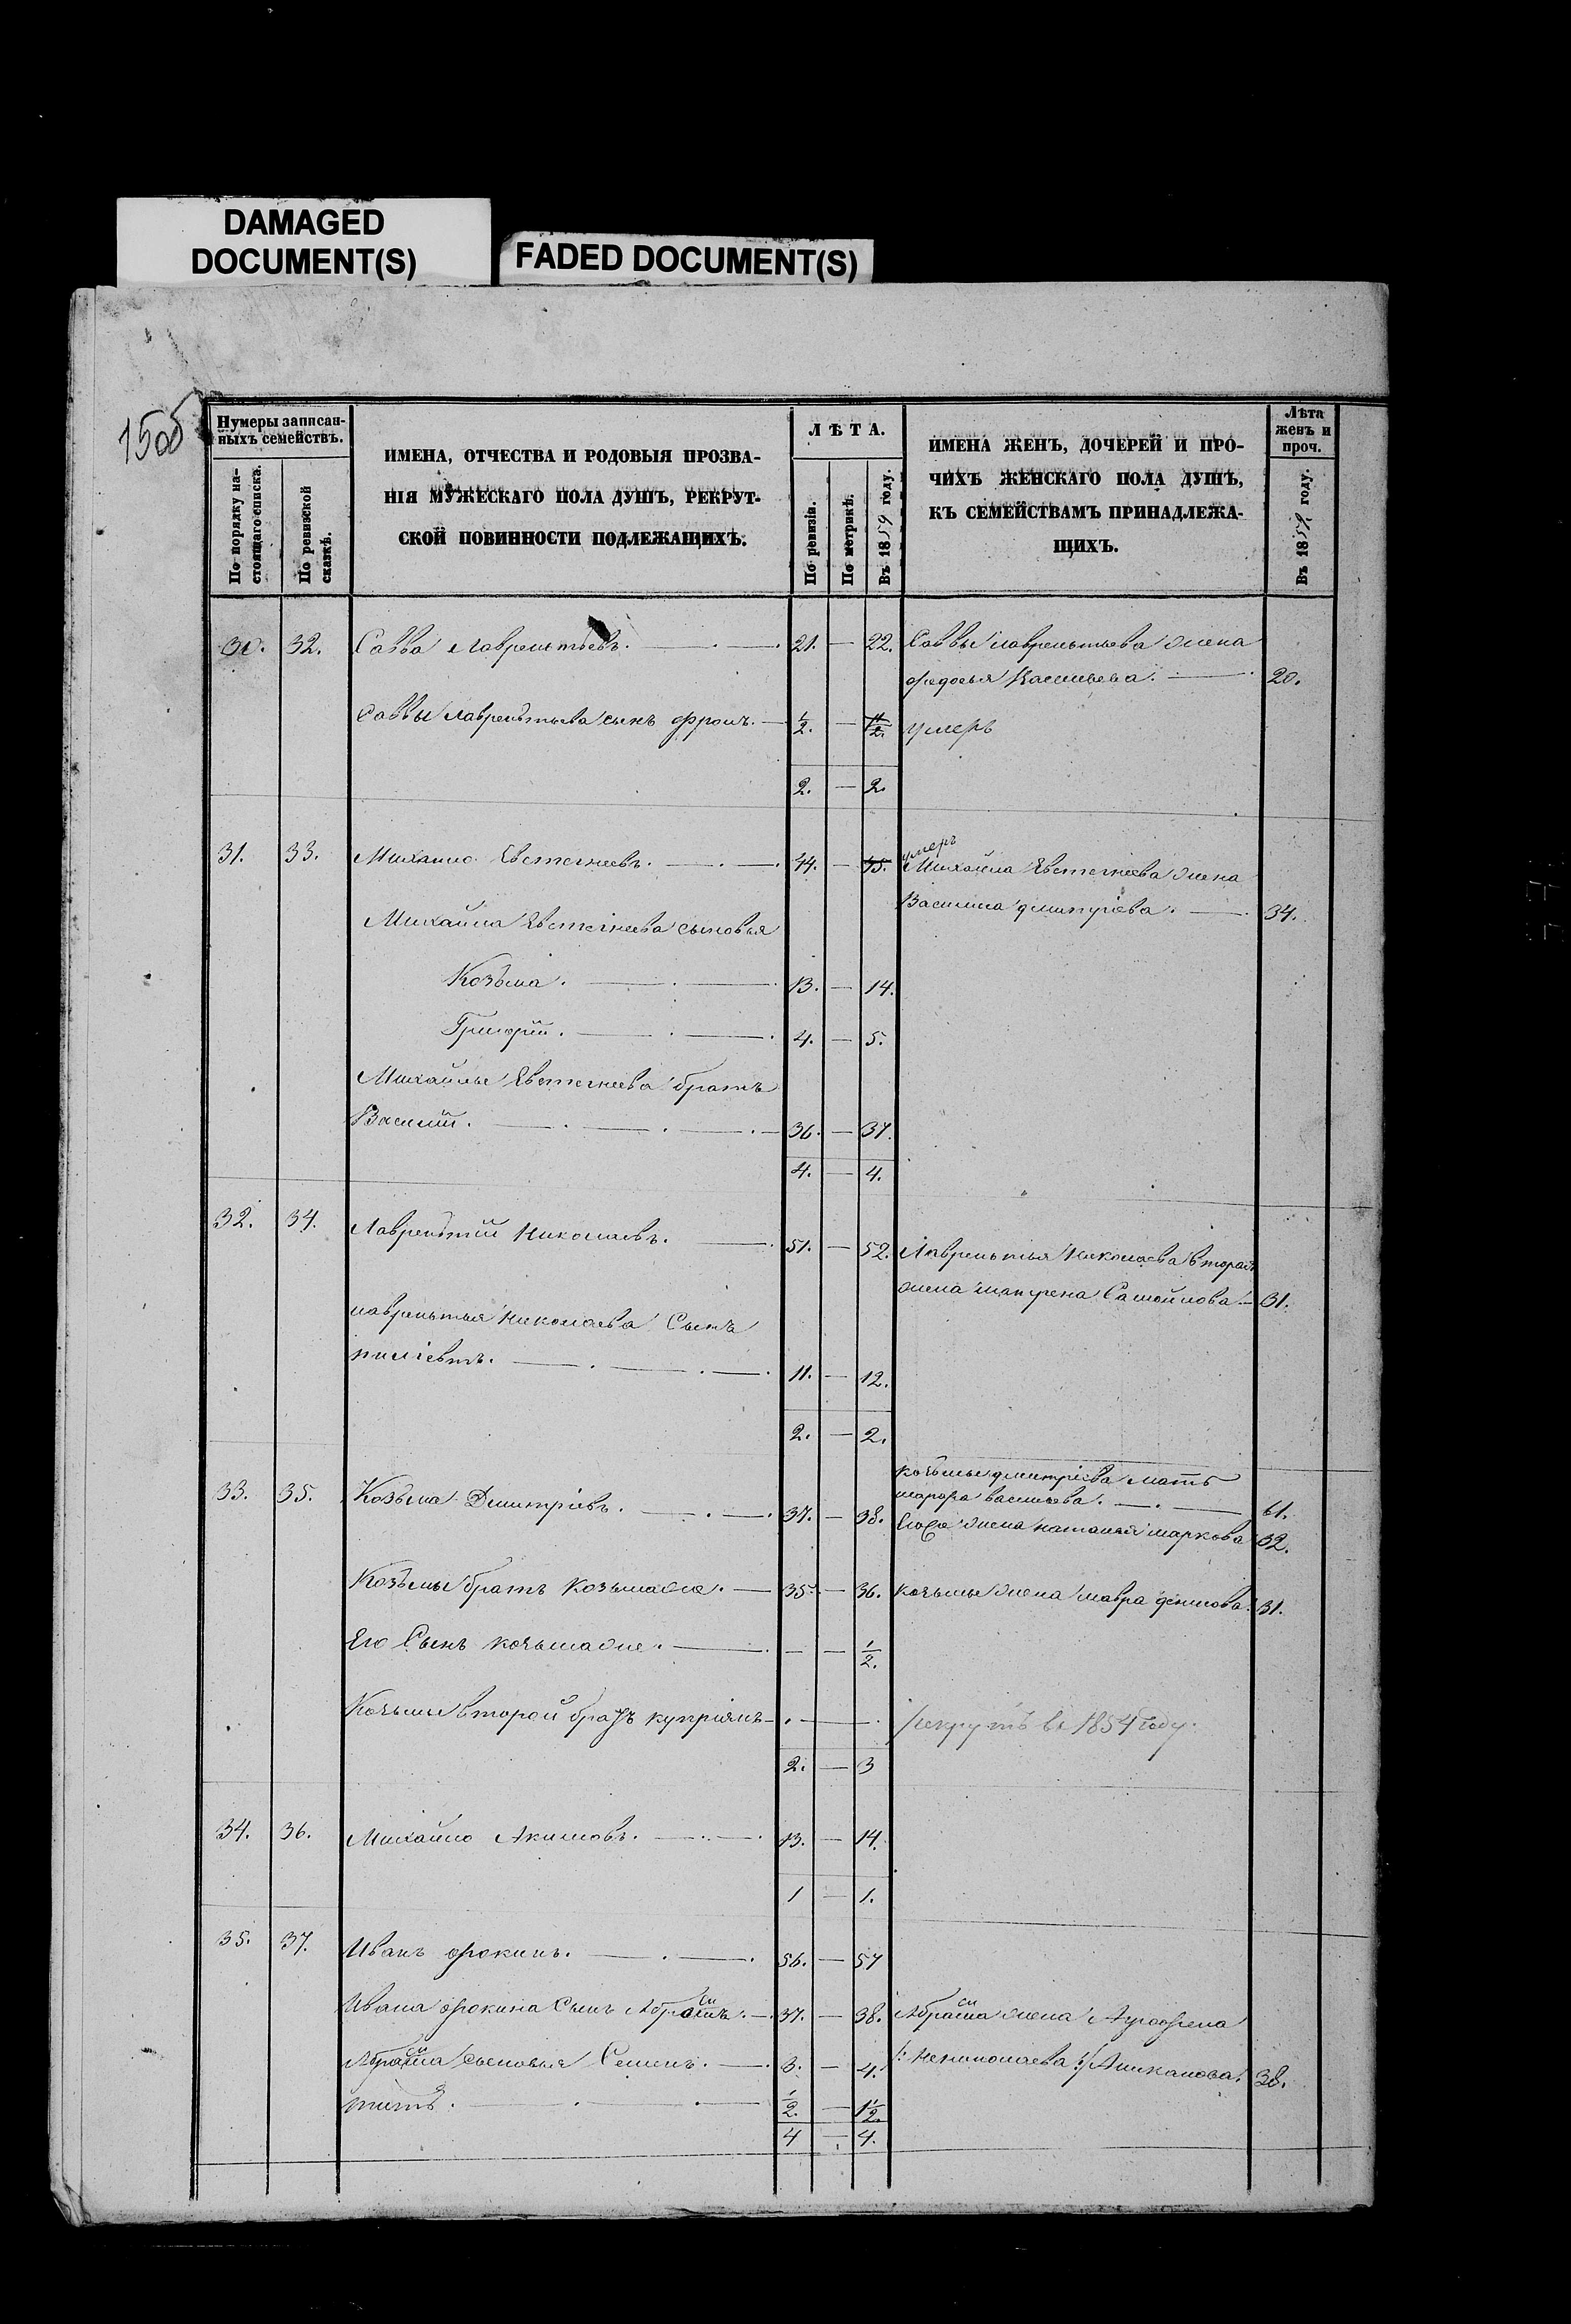 DAMAGED
DOCUMENT(S)
FADED DOCUMENT(S)
15об
Нумеры записан-
ныхъ семействъ.
По порядку на-
стоящаго списка.
По ревизской
сказкѣ.
ИМЕНА, ОТЧЕСТВА И РОДОВЫЯ ПРОЗВА-
НІЯ МУЖЕСКАГО ПОЛА ДУШЪ, РЕКРУТ-
СКОЙ ПОВИННОСТИ ПОДЛЕЖАЩИХЪ.
ЛѢТА.
По ревизіи.
По метрикѣ.
Въ 1859 году.
ИМЕНА ЖЕНЪ, ДОЧЕРЕЙ И ПРО-
ЧИХЪ ЖЕНСКАГО ПОЛА ДУШЪ,
КЪ СЕМЕЙСТВАМЪ ПРИНАДЛЕЖА-
ЩИХЪ.
Лѣта
женъ и
проч.
Въ 1859 году.
30. 32. Савва Лаврентьевъ. 21. — 22. Саввы лаврентьева жена
федосья Васильева. 20.
Саввы лаврентьева сынъ фролъ. — 1/2. — 1 1/2. умеръ
2. — 2.
31. 33. Михайло Евстегнеевъ. 44. — 45. умеръ
Михайла Евстегнеева жена
Василиса дмитріева. 34.
Михайла Евстегнеева сыновья
Козьма. 13. — 14.
Григорій. 4. — 5.
Михайлы Евстегнеева братъ
Василій. 36. — 37.
4. — 4.
32. 34. Лаврентій Николаевъ. 51. — 52. Лаврентья Николаева вторая
жена матрена Самойлова — 31.
лаврентья николаева Сынъ
11. — 12.
2. — 2.
33. 35. Козьма Дмитріевъ. 37. — 38. козьмы дмитріева мать
васильева. 61.
жена наталья маркова 32.
Козьмы братъ Козьмаже. — 35. — 36. козьмы жена мавра денисова. 31.
Его Сынъ козьмаже. — — 1/2.
Козьмы второй братъ купріянъ — рекрутъ въ 1854 году.
2. — 3
34. 36. Михайло Акимовъ. 13. — 14.
1 — 1.
35. 37. Иванъ фокинъ. 56. — 57
Ивана фокина Сынъ Абрамъ. — 37. — 38. Абрама жена Агрофена
Абрама сыновья Семенъ. 3. — 4. /: неиколаева :/ Аниканова. 38.
титъ. 1/2. — 1 1/2.
4 — 4.